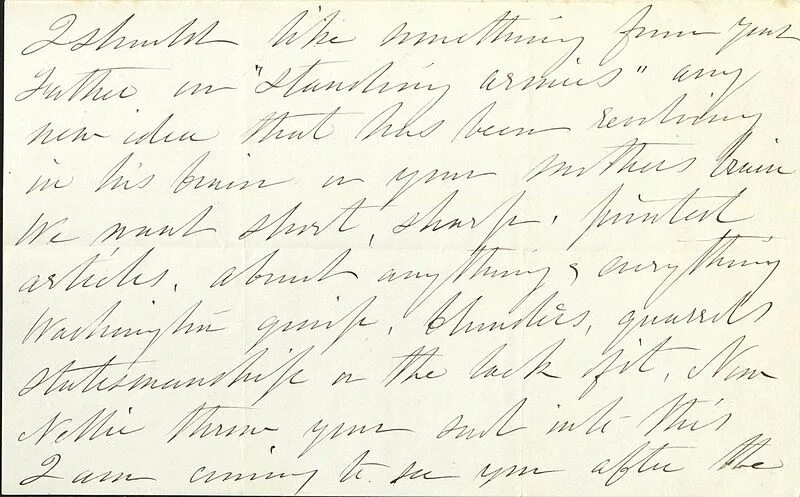 I should like something from your
Father on "standing armies" any
new idea that has been revolving
in his brain or your mothers brain
We want short, sharp, pointed
articles, about anything & everything
Washington gossip, blunders, quarrels
statesmanship or the lack of it. Now
Nellie throw your soul into this
I am coming to see you after the